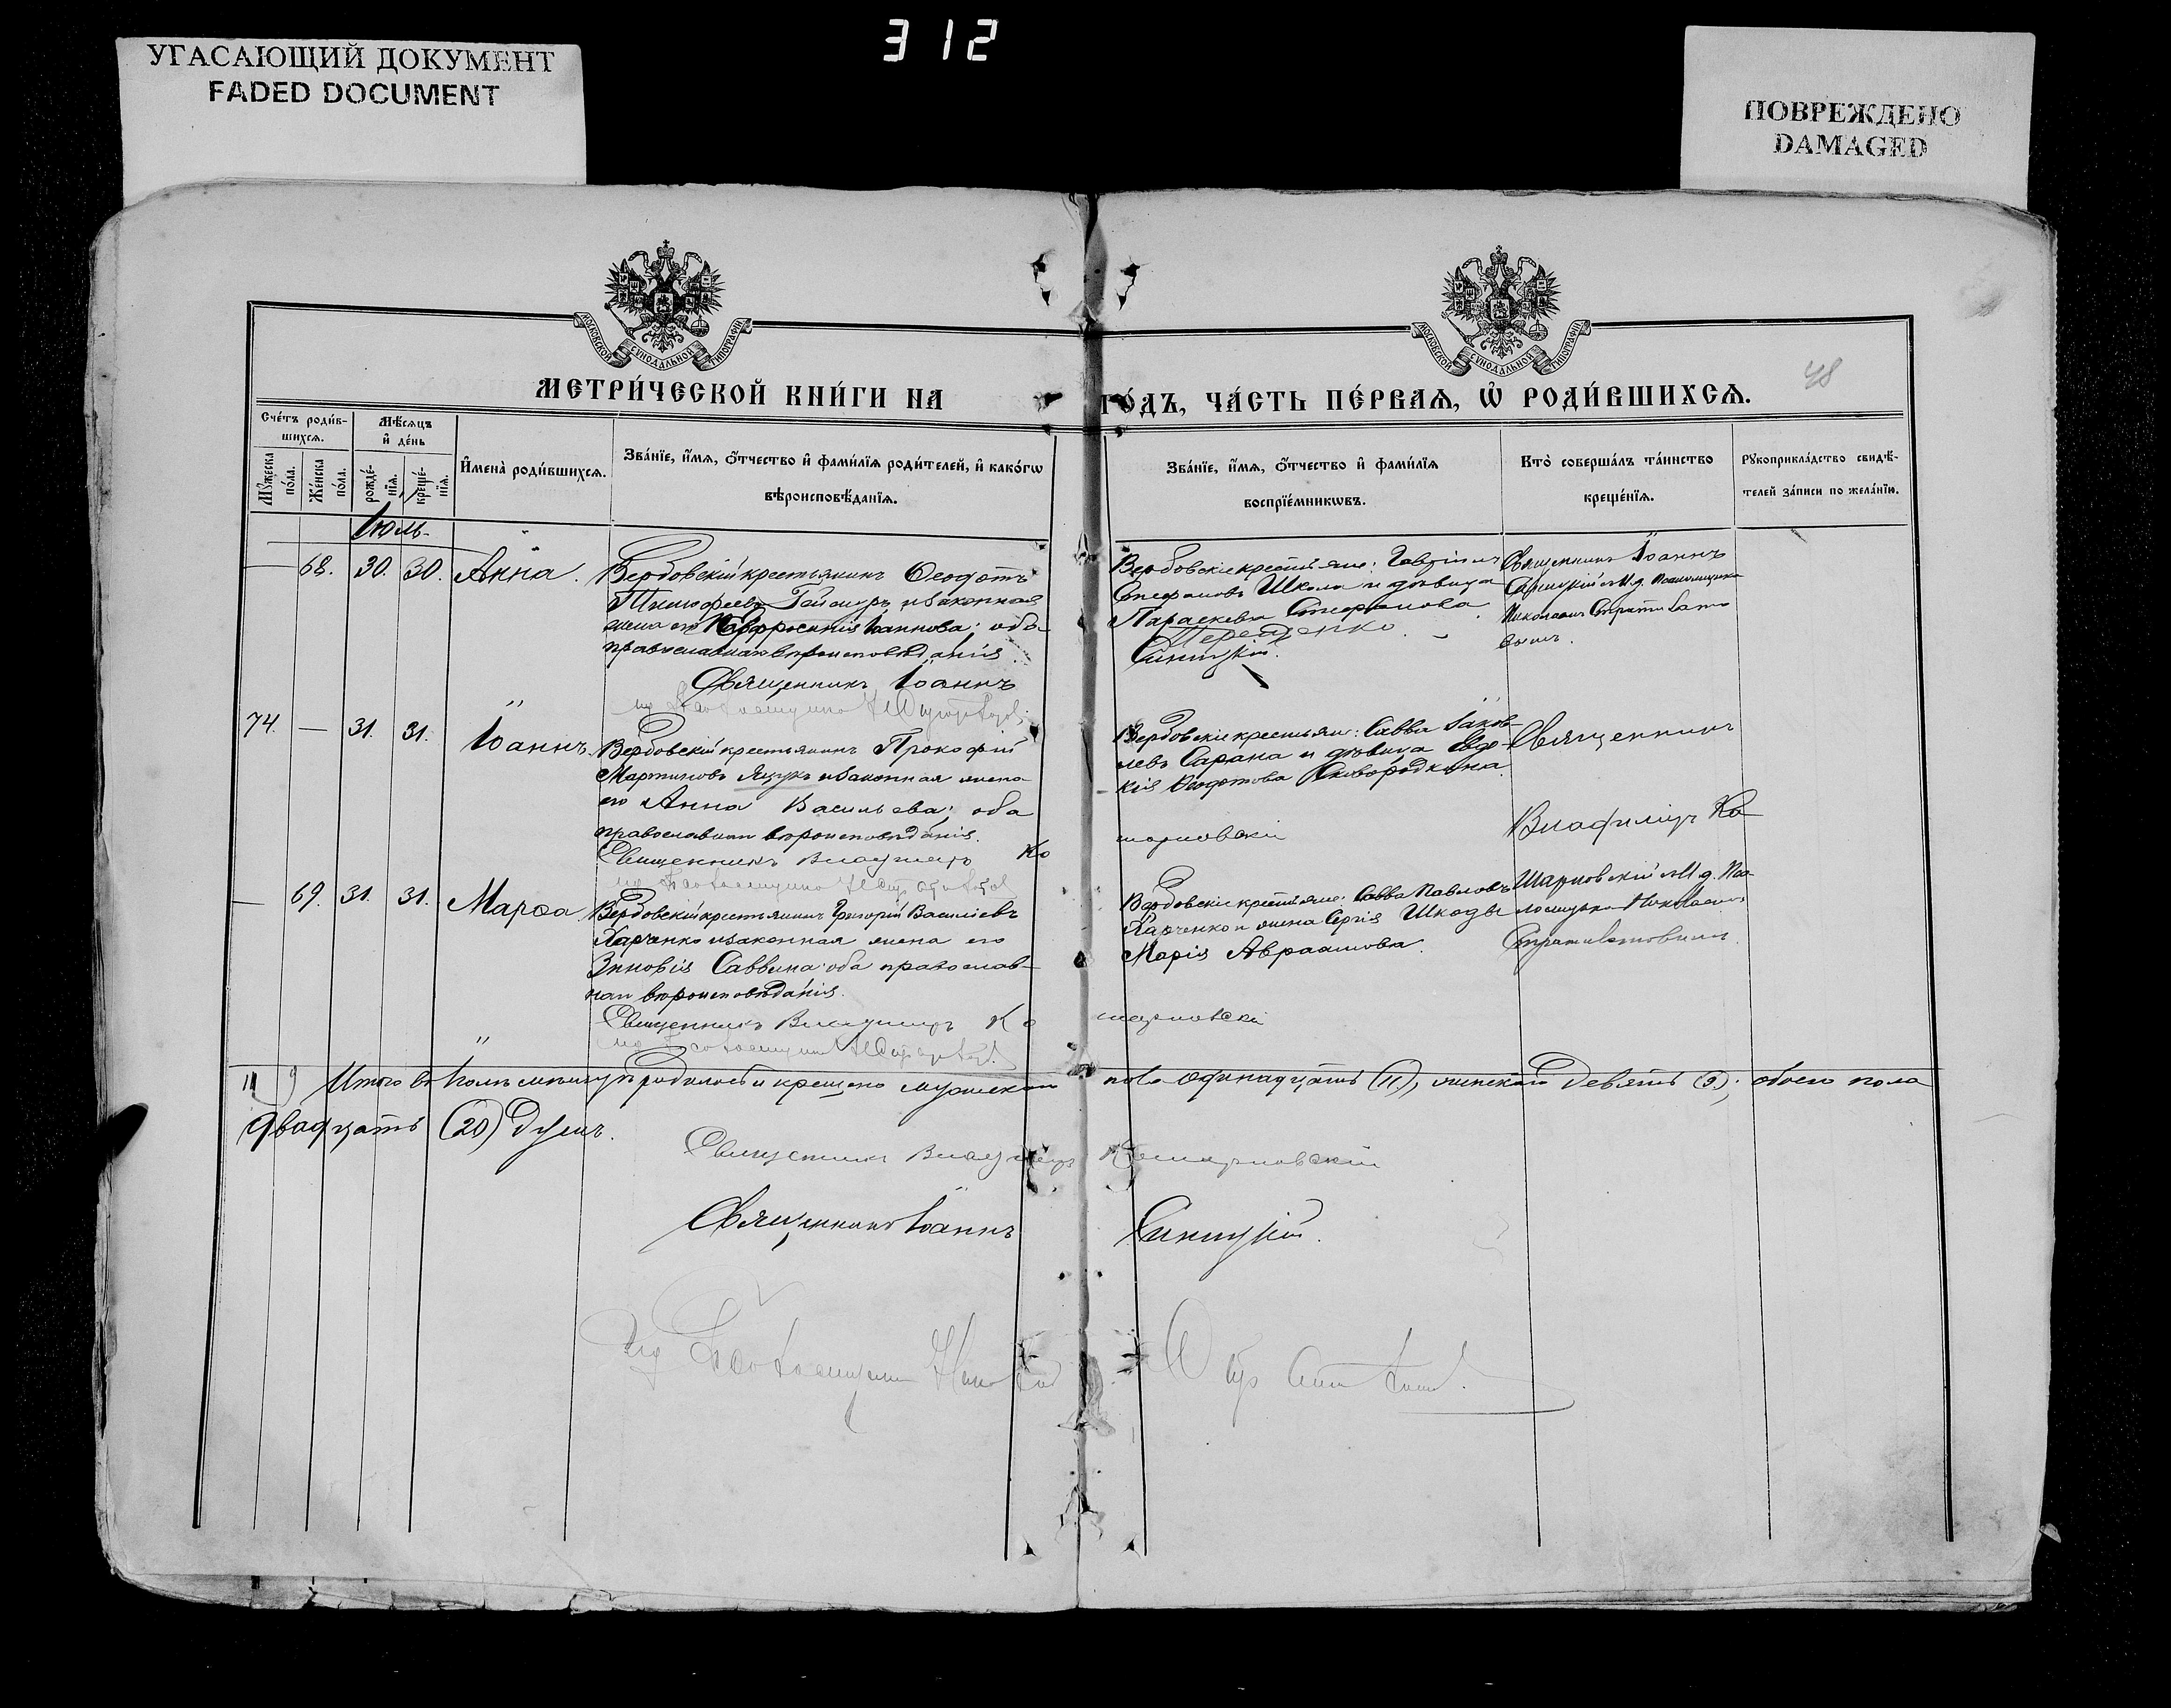 312
УГАСАЮЩИЙ ДОКУМЕНТ
FADED DOCUMENT
ПОВРЕЖДЕНО
DAMAGED
МОСКОВСКОЙ СѴНОДАЛЬНОЙ ТИПОГРАФІИ
МОСКОВСКОЙ СѴНОДАЛЬНОЙ ТИПОГРАФІИ
48
МЕТРИ́ЧЕСКОЙ КНИ́ГИ НА
ГО́ДЪ, ЧА́СТЬ ПЕ́РВАѦ, Ѡ҆ РОДИ́ВШИХСѦ.
Сче́тъ роди́в-
шихсѧ.
Мѣ́сѧцъ
и҆ де́нь
Мꙋ́жеска
по́ла.
Же́нска
по́ла.
рожде́-
нїѧ.
креще́-
нїѧ.
И҆мена̀ роди́вшихсѧ.
Зва́нїе, и҆́мѧ, ѻ҆́тчество и҆ фами́лїѧ роди́телей, и҆ како́гѡ
вѣроисповѣ́данїѧ.
Зва́нїе, и҆́мѧ, ѻ҆́тчество и҆ фами́лїѧ
воспрїе́мникѡвъ.
Кто̀ соверша́лъ та́инство
креще́нїѧ.
Рꙋкоприкла́дство свидѣ́-
телей за́писи по жела́нїю.
Іюль
68. 30. 30. Анна.
Вербовскій крестьянинъ Ѳеодотъ
Тимофеевъ и законная
жена его Евфросинія Іаннова; оба
православнаго вѣроисповѣданія.
Священникъ Іоаннъ
Вербовскіе крестьяне: Гавріилъ
Стефановъ Школа и дѣвица
Параскева Стефанова
Синицкій.
Священникъ Іоаннъ
Синицкій съ И. д. Псаломщика
Николаемъ Стратилато-
вымъ.
74. — 31. 31. Іоаннъ.
Вербовскій крестьянинъ Прокофій
Мартиновъ Яцукъ и законная жена
его Анна Васильева; оба
православнаго вѣроисповѣданія.
Священникъ Владиміръ Ко
Вербовскіе крестьяне: Савва Іаков-
левъ Сарана и дѣвица Евдо-
кія Ѳеодотова Сковородкина.
шарновскій
Священникъ
Владиміръ Ко-
— 69. 31. 31. Марѳа
Вербовскій крестьянинъ Григорій Васильевъ
Харченко и законная жена его
Зиновія Саввина; оба православ-
наго вѣроисповѣданія.
Священникъ Владиміръ Ко
Вербовскіе крестьяне: Савва Павловъ
Харченко и жена Сергія Шкоды
Марія Авраамова.
шарновскій
шарновскій съ И. д. Пса-
ломщика Николаемъ
Стратилатовымъ.
11 9 Итого въ Іюлѣ мѣсяцѣ родилось и крещено мужескаго пола одинадцать (11), женскаго девять (9); обоего пола
двадцать (20) душъ.
Священникъ Владиміръ Кошарновскій
Священникъ Іоаннъ Синицкій.